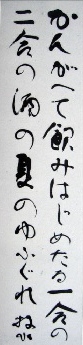 かんがへて飲みはじめたる一合の
二合の酒の夏のゆふぐれ